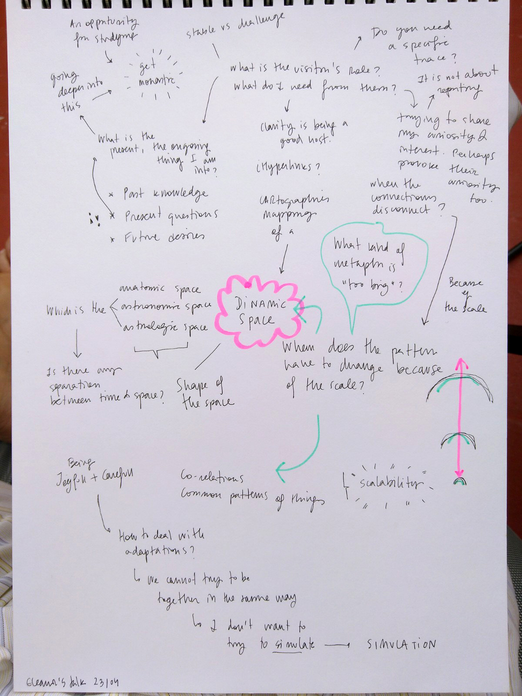 An opportunity
for studying
going
deeper into
this
get
monastic
stable vs. challenge
What is the visitor's role?
What do I need from them?
Do you need
a specific
trace?
It is not about
reporting
trying to share
my curiosity &
interest. Perhaps
provoke their
curiosity
too.
Clarity is being a
good host.
What is the
present, the ongoing
thing I am
into?
* Past knowledge
* Present questions
* Future desires
Hyperlinks?
CARtographies
mapping
of a
when the
connections
disconnect?
What kind of
metaphor is
"too big"?
Because
of
the scale
DiNAMiC
SPACE
Which is the
anatomic space
astronomic space
astrologic space
Is there any
separation
between time & space?
Shape of
the space
When does the pattern
have to change because
of the scale?
Being
Joyful + Careful
Co-relations
Common patterns of things
scalability
How to deal with
adaptations?
we cannot try to be
together in the same way
I don't want to
try to simulate → SIMULATION
Eleana's talk 23/04